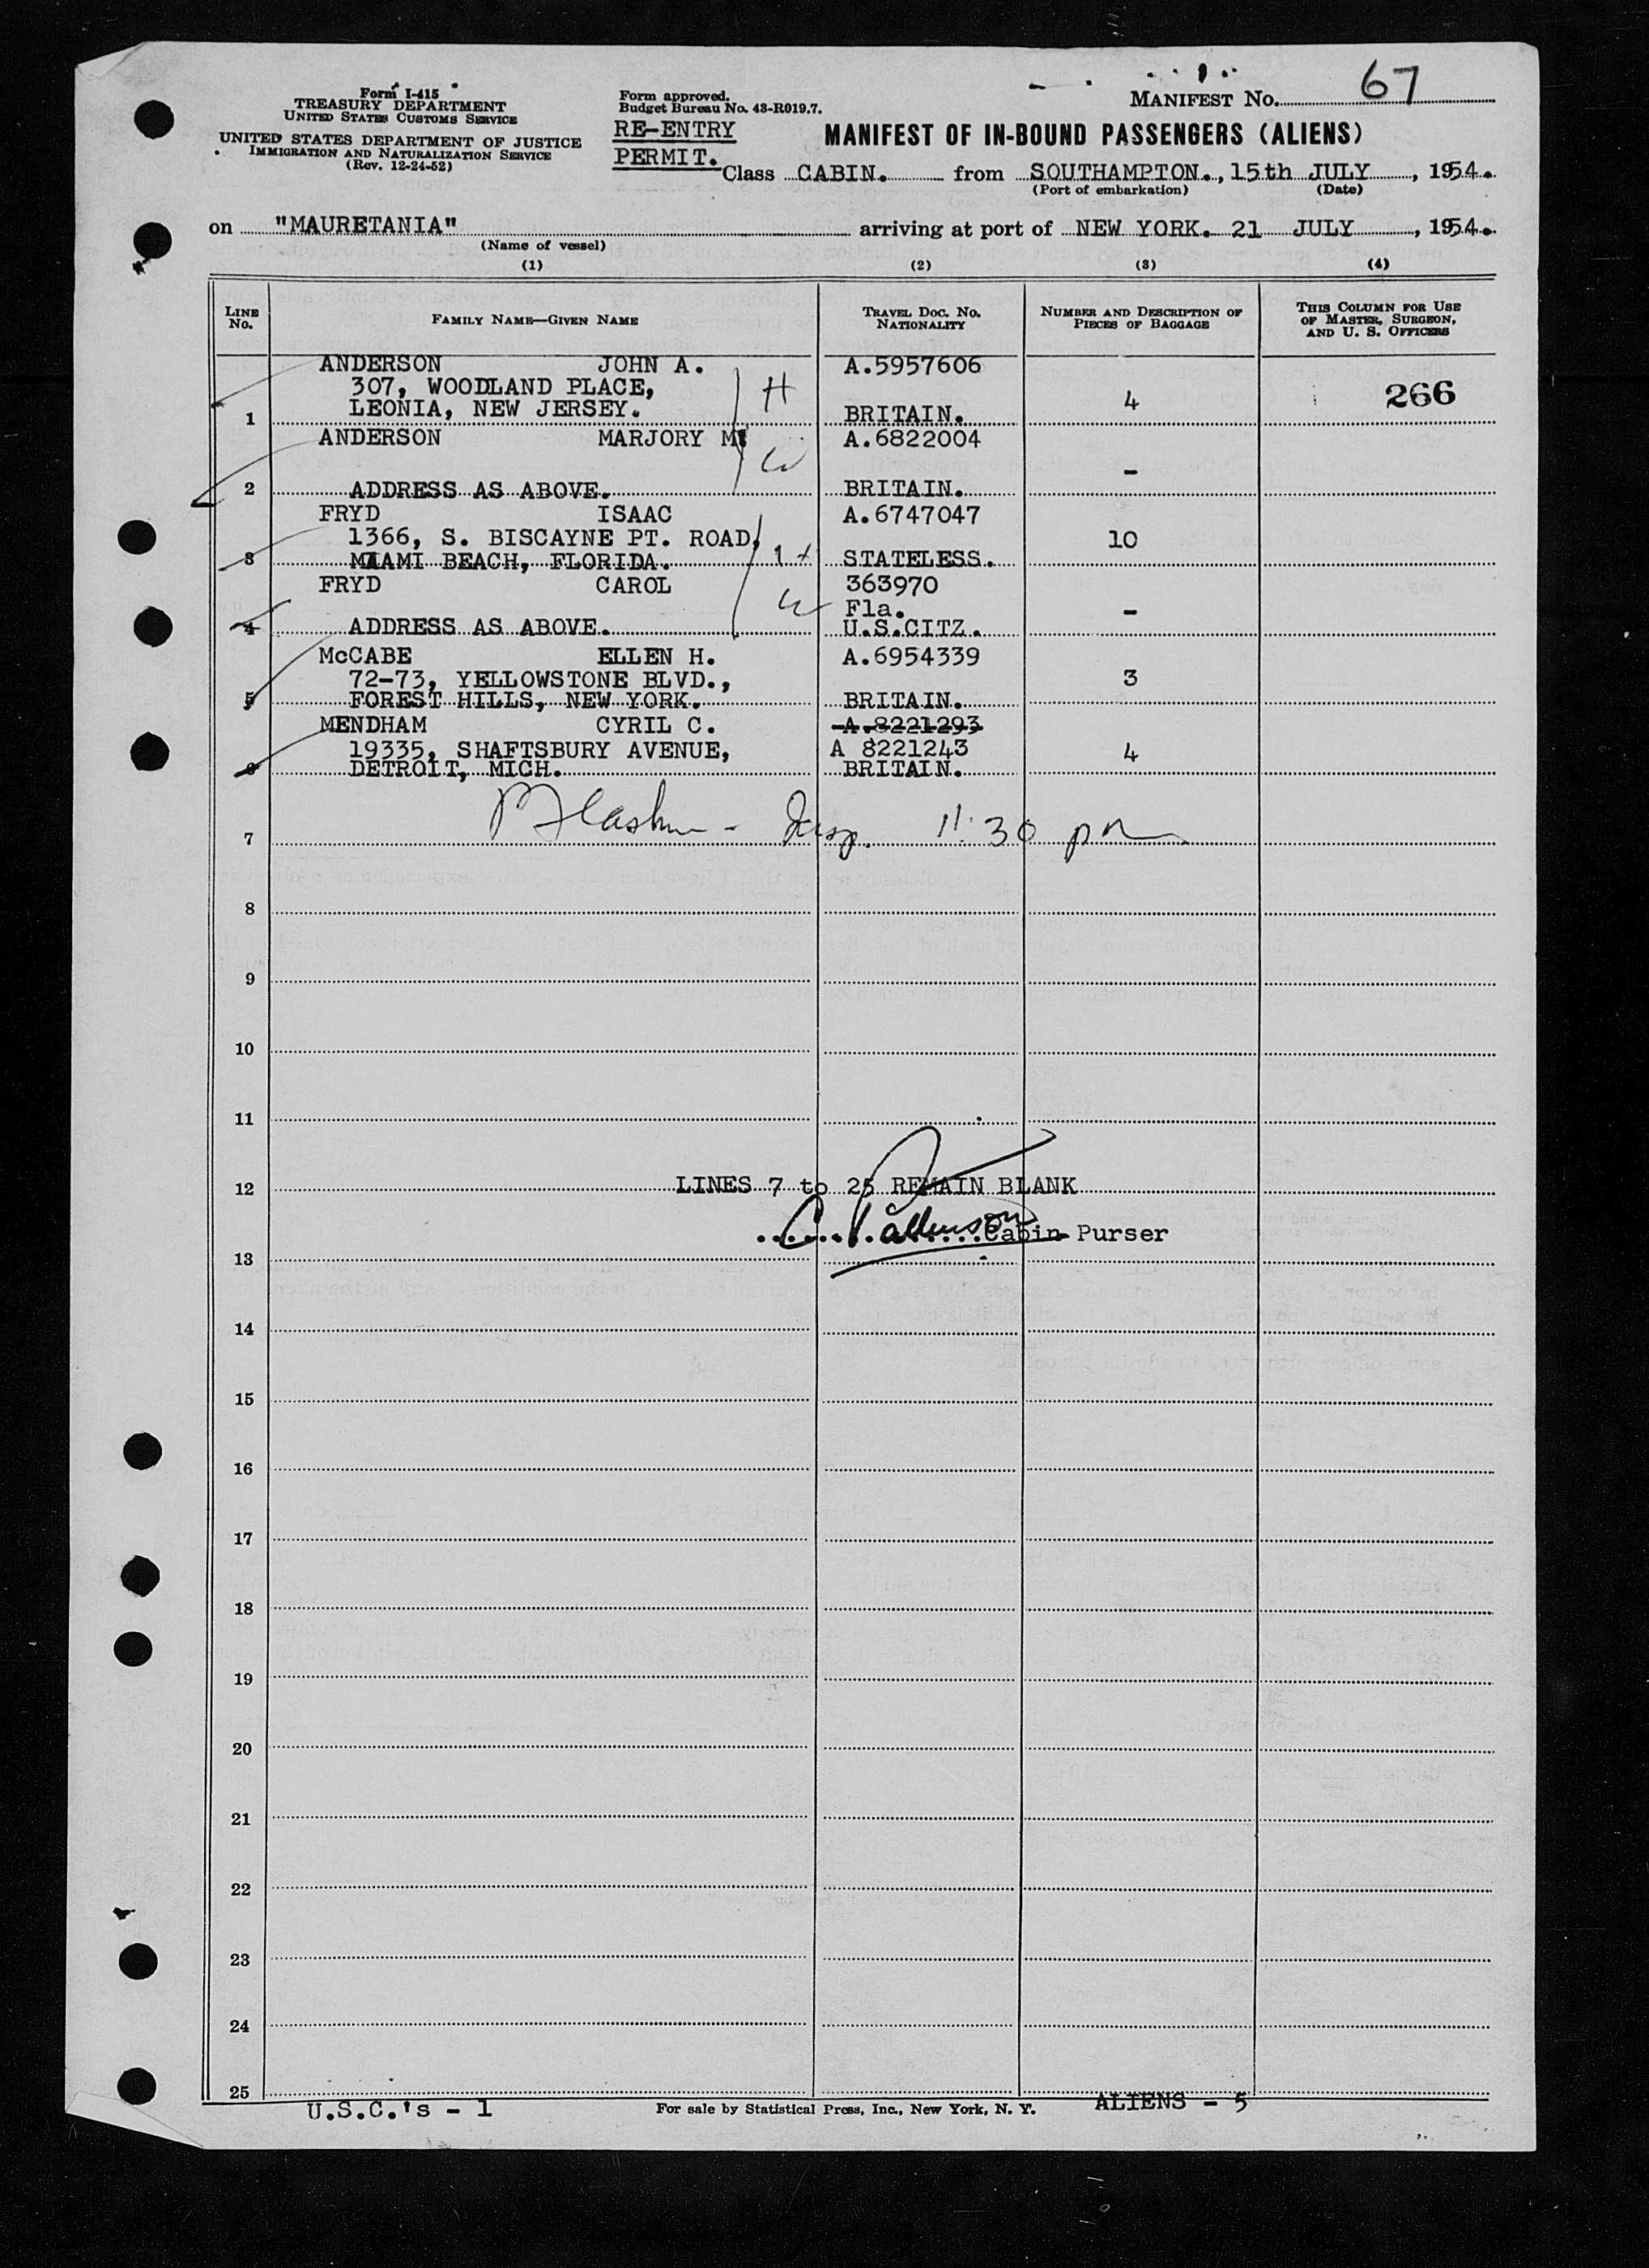 Form I-415
TREASURY DEPARTMENT
UNITED STATES CUSTOMS SERVICE
UNITED STATES DEPARTMENT OF JUSTICE
IMMIGRATION AND NATURALIZATION SERVICE
(Rev. 12-24-52)
Form approved.
Budget Bureau No. 43-R019.7.
RE-ENTRY
PERMIT.
MANIFEST NO. 67
MANIFEST OF IN-BOUND PASSENGERS (ALIENS)
Class CABIN. from SOUTHAMPTON., 15th JULY, 1954.
(Port of embarkation) (Date)
on "MAURETANIA" arriving at port of NEW YORK. 21 JULY, 1954.
(Name of vessel)
(1) (2) (3) (4)
LINE NO.
FAMILY NAME—GIVEN NAME
TRAVEL DOC. NO. NATIONALITY
NUMBER AND DESCRIPTION OF PIECES OF BAGGAGE
THIS COLUMN FOR USE OF MASTER, SURGEON, AND U. S. OFFICERS
ANDERSON JOHN A. A.5957606
307, WOODLAND PLACE, H 4 266
1 LEONIA, NEW JERSEY. BRITAIN.
ANDERSON MARJORY M. A.6822004
W -
2 ADDRESS AS ABOVE. BRITAIN.
FRYD ISAAC A.6747047
1366, S. BISCAYNE PT. ROAD, 10
3 MIAMI BEACH, FLORIDA. H STATELESS.
FRYD CAROL 363970
W Fla. -
4 ADDRESS AS ABOVE. U.S.CITZ.
McCABE ELLEN H. A.6954339
72-73, YELLOWSTONE BLVD., 3
5 FOREST HILLS, NEW YORK. BRITAIN.
MENDHAM CYRIL C. A.8221293
19335, SHAFTSBURY AVENUE, A 8221243 4
6 DETROIT, MICH. BRITAIN.
7 Insp. 11:30 pm
8
9
10
11
12 LINES 7 to 25 REMAIN BLANK
Cabin Purser
13
14
15
16
17
18
19
20
21
22
23
24
25
U.S.C.'s - 1 For sale by Statistical Press, Inc., New York, N. Y. ALIENS - 5